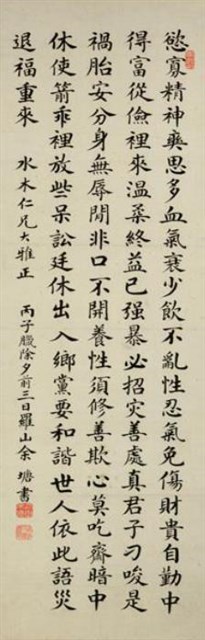 慾寡精神爽思多血氣衰少飲不亂性忍氣免傷財貴自勤中
得富從儉裡來温柔終益己强暴必招灾善處真君子刁唆是
禍胎安分身無辱閒非口不開養性須修善欺心莫吃齋暗中
休使箭乖裡放些呆訟廷休出入鄉黨要和諧世人依此語災
退福重來 水木仁兄大雅正 丙子臘除夕前三日羅山余塘書